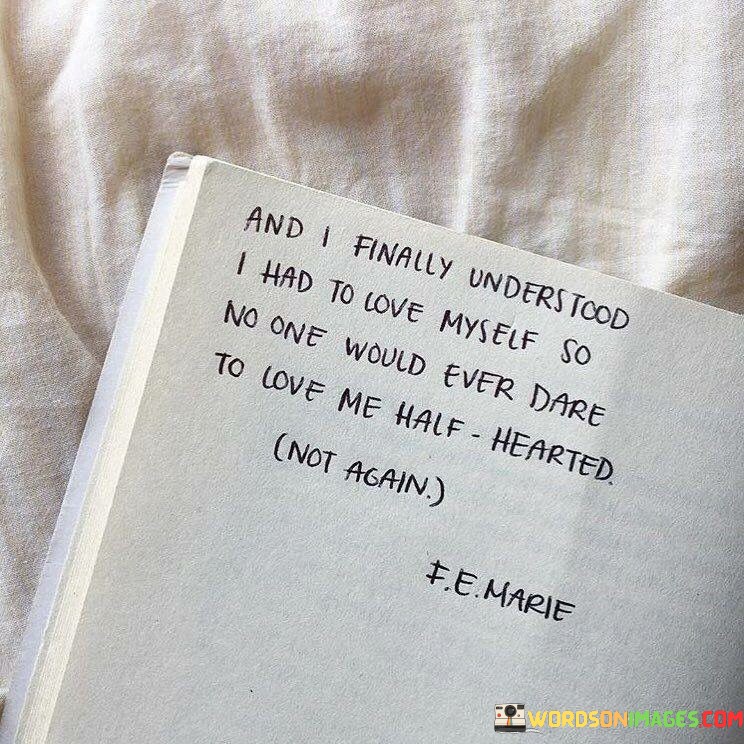 AND I FINALLY UNDERSTOOD
I HAD TO LOVE MYSELF SO
NO ONE WOULD EVER DARE
TO LOVE ME HALF-HEARTED.
(NOT AGAIN.)
F.E.MARIE
WORDSONIMAGES.COM